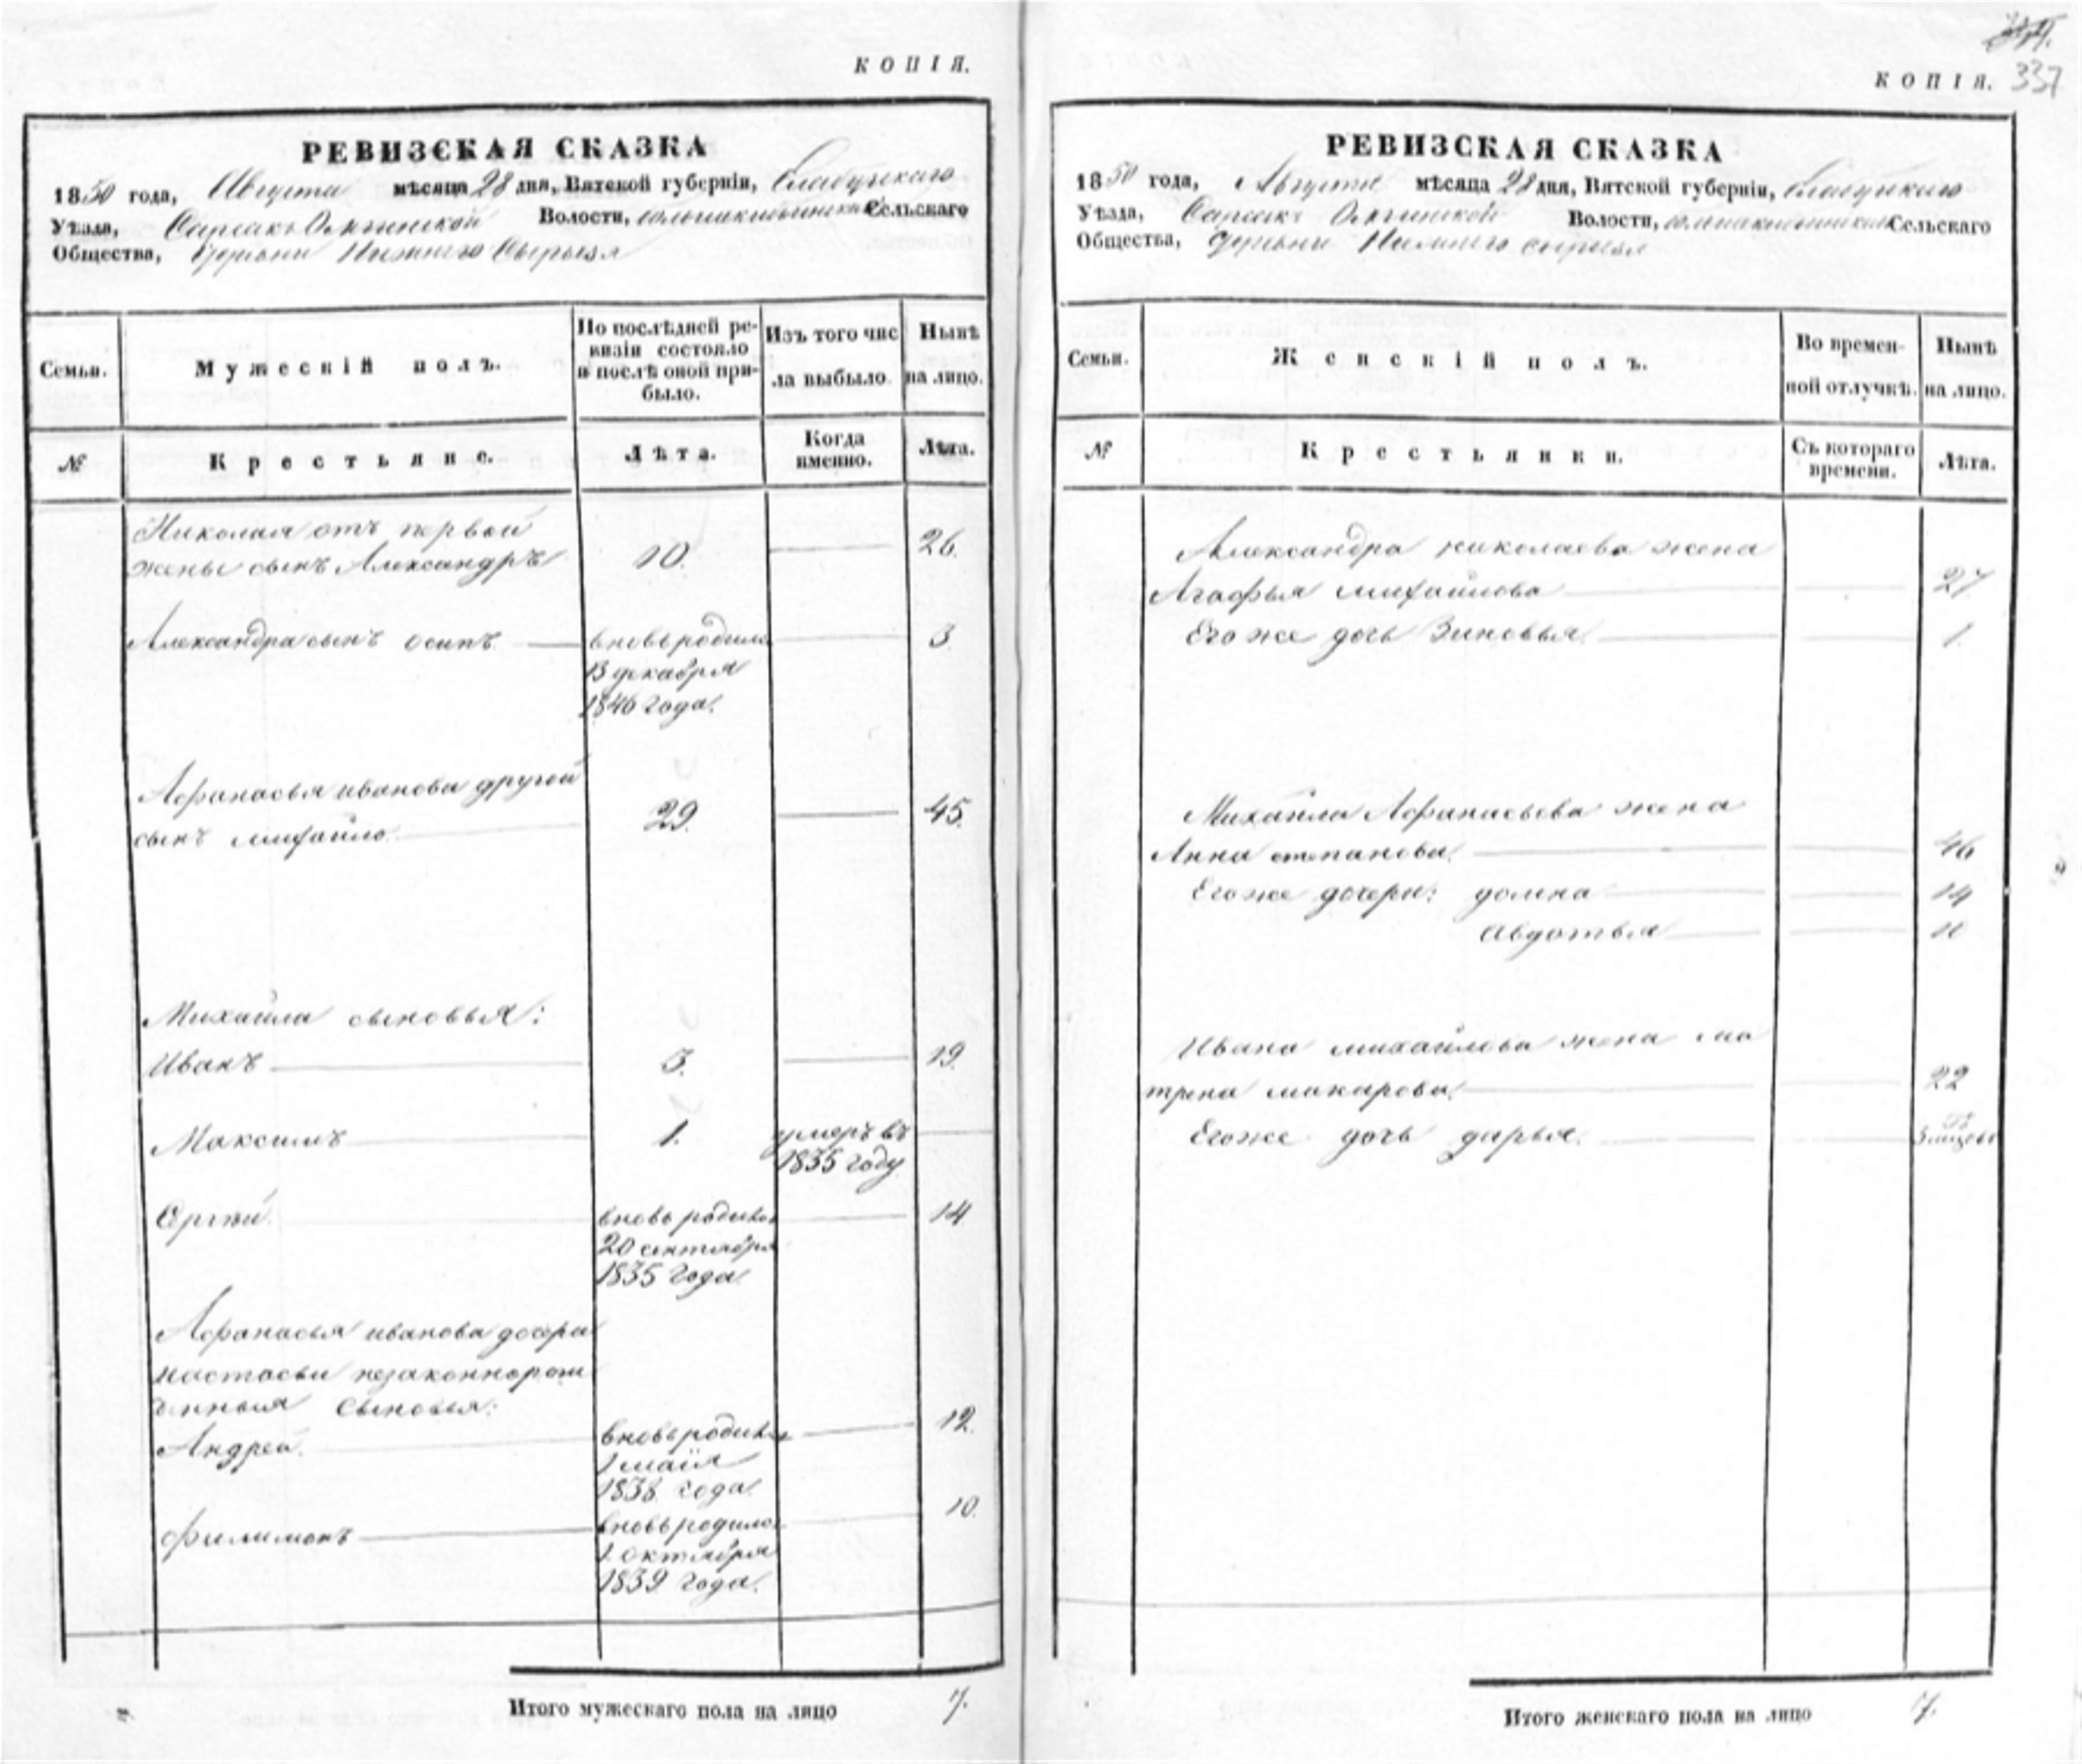 КОПІЯ.
РЕВИЗСКАЯ СКАЗКА
1850 года, Августа мѣсяца 28 дня, Вятской губерніи, Елабужскаго
Уѣзда, Волости, Сельскаго
Общества, деревни Нижняго Сырьеза
Семьи.
Мужескій полъ.
По послѣдней ре-
визіи состояло
и послѣ оной при-
было.
Изъ того чис
ла выбыло.
Нынѣ
на лицо.
№
Крестьяне.
Лѣта.
Когда
именно.
Лѣта.
Николая отъ первой
жены сынъ Александръ 10. 26.
Александра сынъ осипъ вновь родился 3
13 декабря
1846 года.
Афанасья иванова другой
сынъ михайло. 29. 45.
Михайла сыновья:
Иванъ 3. 19.
Максимъ 1. умеръ въ
1835 году
Сергѣй. вновь родился 14
20 сентября
1835 года
Афанасья иванова дочери
настасьи незаконнорож
денныя сыновья:
Андрей. вновь родился 12.
1 маія
1838 года
филимонъ вновь родился 10.
1 октября
1839 года.
Итого мужескаго пола на лицо 7.
337
КОПІЯ.
РЕВИЗСКАЯ СКАЗКА
1850 года, Августа мѣсяца 28 дня, Вятской губерніи, Елабужскаго
Уѣзда, Волости, Сельскаго
Общества, деревни Нижняго сырьеза
Семьи.
Женскій полъ.
Во времен-
ной отлучкѣ.
Нынѣ
на лицо.
№
Крестьянки.
Съ котораго
времени.
Лѣта.
Александра николаева жена
Агафья михайлова 27
Его же дочь Зиновья. 1.
Михайла Афанасьева жена
Анна степанова. 46
Его же дочери: домна 14
Авдотья 11
Ивана михайлова жена ма
трена макарова. 22
Его же дочь дарья.
Итого женскаго пола на лицо 7.